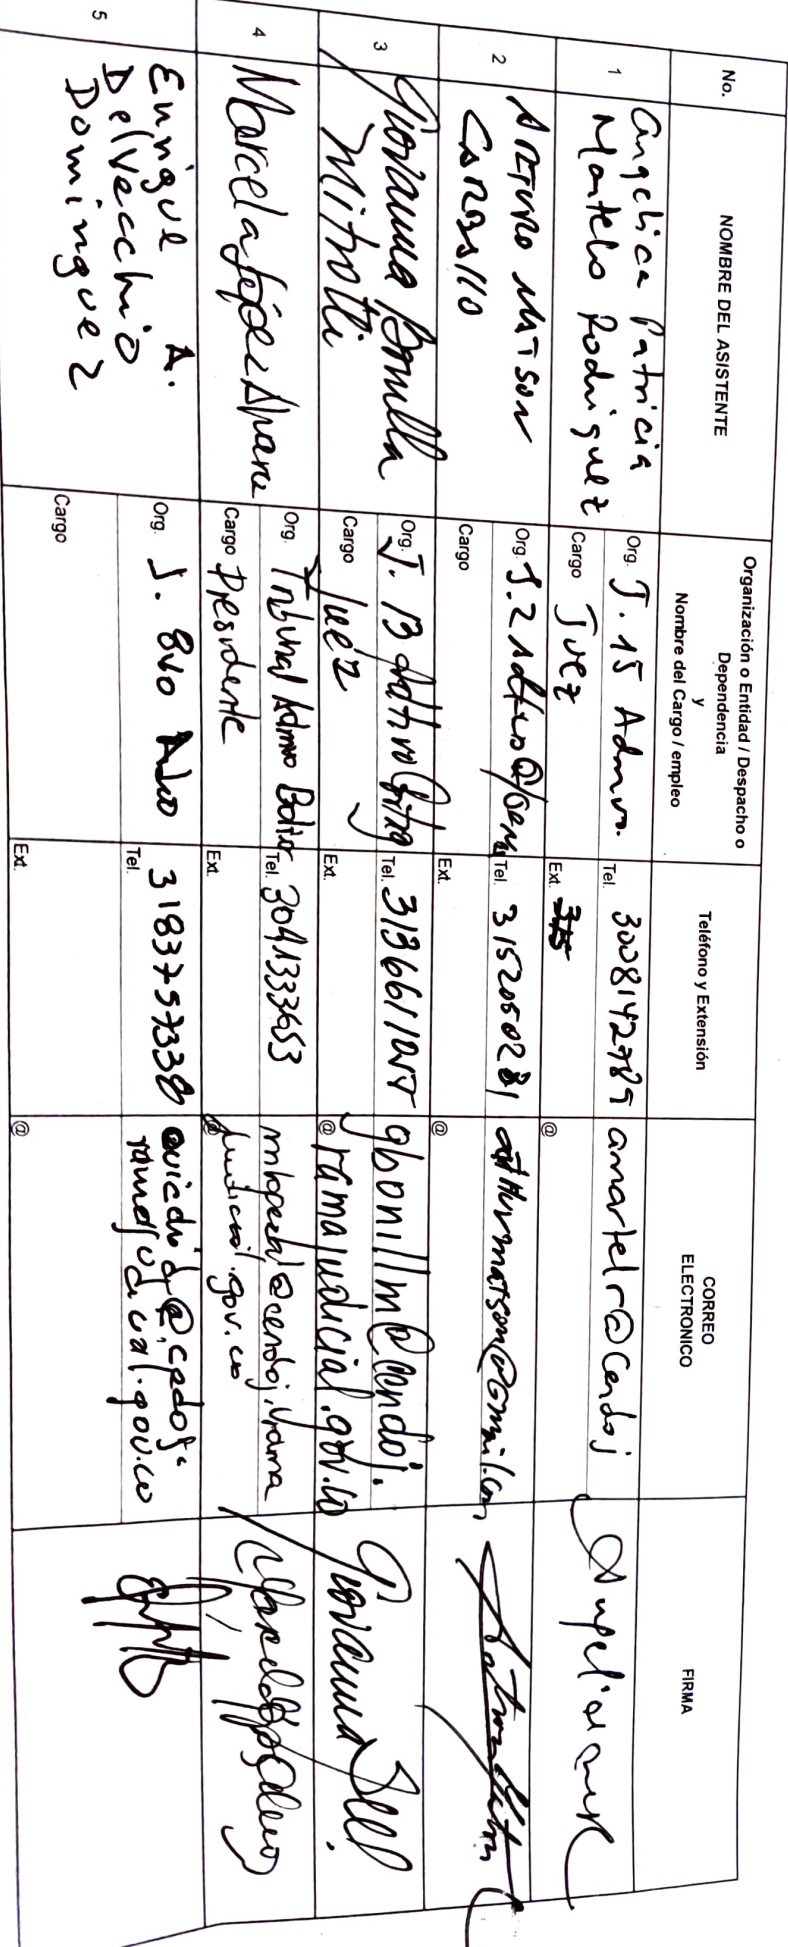 No.
NOMBRE DEL ASISTENTE
Organización o Entidad / Despacho o
Dependencia
y
Nombre del Cargo / empleo
Teléfono y Extensión
CORREO
ELECTRONICO
FIRMA
1
Angelica Patricia
Martelo Rodriguez
Org. J. 15 Admvo.
Cargo Juez
Tel. 3008142785
Ext.
amartelr@cendoj
@
2
ARTURO MATSON
CARBALLO
Org. J. 2
Cargo
Tel. 3152050281
Ext.
arthurmatson@gmail.com
@
3
Giovanna Bonilla
Mitrotti
Org. J. 13
Cargo Juez
Tel. 3136611057
Ext.
gbonillm@cendoj.
@ ramajudicial.gov.co
4
Marcela López Alvarez
Org. Tribunal Admvo Bolívar
Cargo Presidente
Tel. 3041333653
Ext.
@cendoj.rama
@ judicial.gov.co
5
Enrique A.
Delvecchio
Dominguez
Org. J. 8vo
Cargo
Tel. 3183757338
Ext.
ramajudicial.gov.co
@